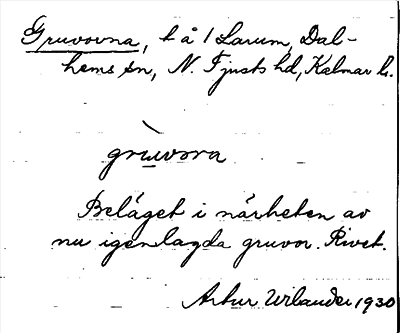 Gruvorna, t å 1 Larum, Dal-
hems sn, N. Tjusts hd, Kalmar l.
grùvora
Beläget i närheten av
nu igenlagda gruvor. Rivet.
Artur Urlander 1930